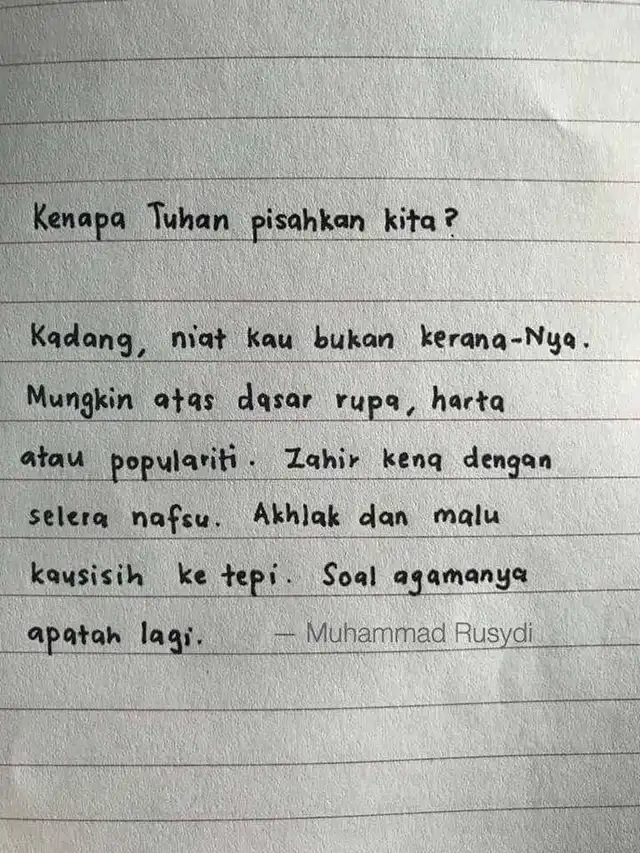 Kenapa Tuhan pisahkan kita?
Kadang, niat kau bukan kerana-Nya.
Mungkin atas dasar rupa, harta
atau populariti. Zahir kena dengan
selera nafsu. Akhlak dan malu
kausisih ke tepi. Soal agamanya
apatah lagi. — Muhammad Rusydi